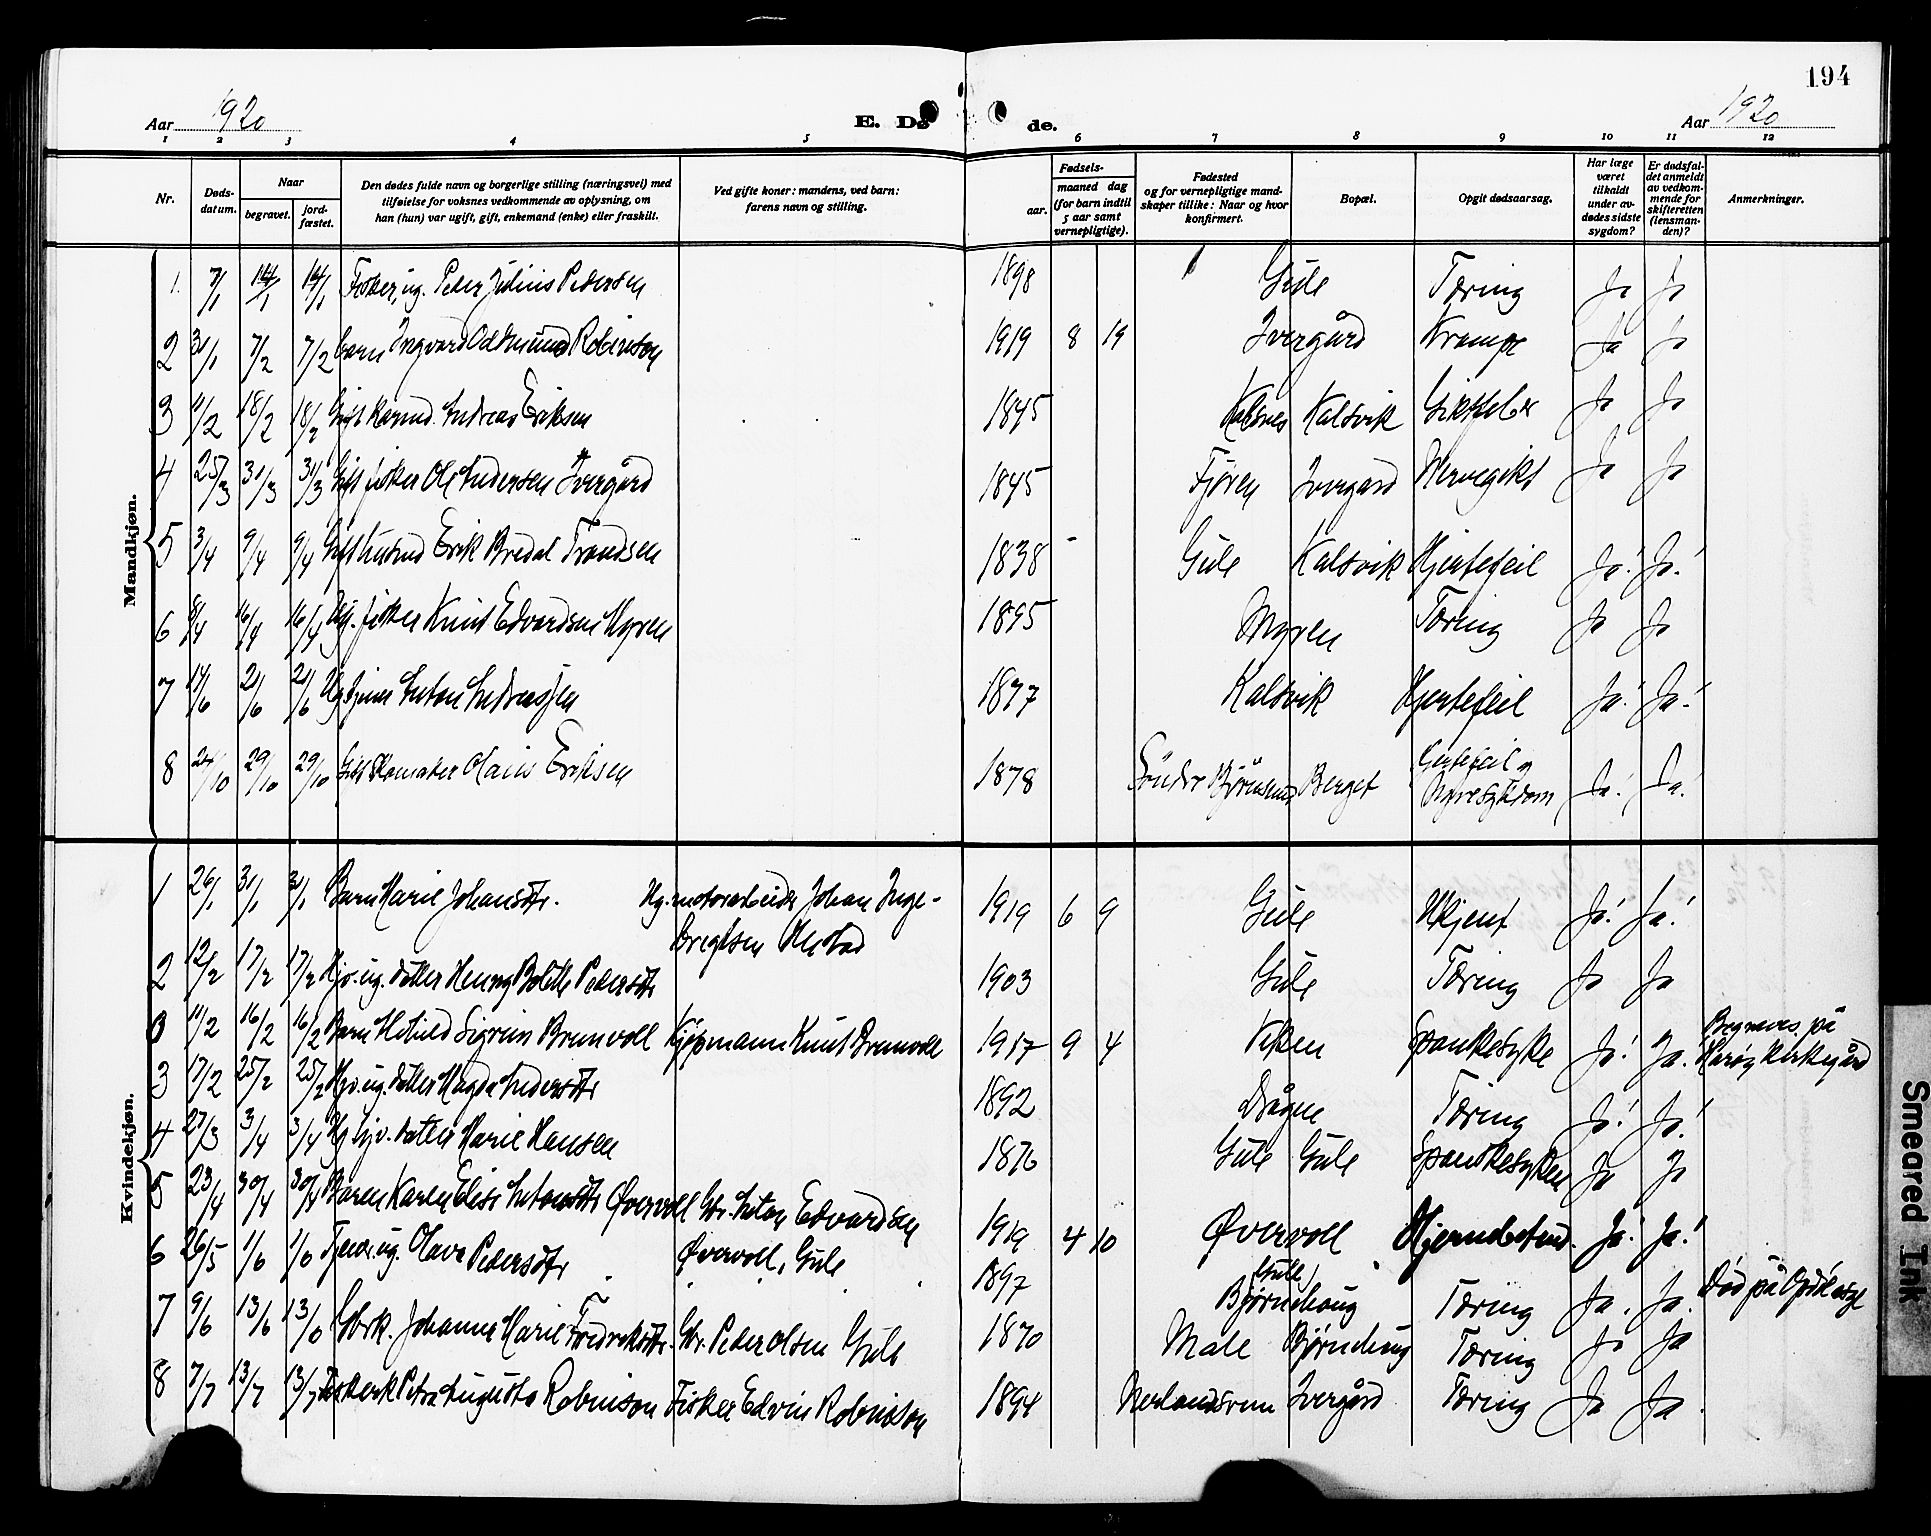 194
Aar 1920
E. Døde.
Aar 1920
1 2 3 4 5 6 7 8 9 10 11 12
Nr.
Døds-
datum.
Naar
begravet.
jord-
fæstet.
Den dødes fulde navn og borgerlige stilling (næringsvei) med
tilføielse for voksnes vedkommende av oplysning, om
han (hun) var ugift, gift, enkemand (enke) eller fraskilt.
Ved gifte koner: mandens, ved barn:
farens navn og stilling.
Fødsels-
aar.
maaned dag
(for barn indtil
5 aar samt
vernepligtige).
Fødested
og for vernepligtige mand-
skaper tillike: Naar og hvor
konfirmert.
Bopæl.
Opgit dødsaarsag.
Har læge
været
tilkaldt
under av-
dødes sidste
sygdom?
Er dødsfal-
det anmeldt
av vedkom-
mende for
skifteretten
(lensman-
den)?
Anmerkninger.
Mandkjøn.
1. 7/1 14/1 14/1 Fisker, ug. Peder Julius Pedersen 1898 Gule Tæring Ja Ja
2 31/1 7/2 7/2 barn Ingvard Odmund Robinson 1919 8 19 Ivergård Krampe Ja Ja
3 11/2 18/2 18/2 Gift Andreas Eriksen 1845 Kalsvik Ja Ja
4 25/3 31/3 31/3 Gift fisker Ole Andersen Ivergård 1845 Fjøren Ivergård Ja Ja
5 3/4 9/4 9/4 Gift husmd Erik Bredal Trondsen 1838 - Gule Kalsvik Hjertefeil Ja! Ja!
6 8/4 16/4 16/4 Ug. fisker Knut Edvardsen Myren 1895 Myren Tæring Ja Ja
7 14/6 21/6 21/6 Anton Andreassen 1877 Kalsvik Hjertefeil Ja! Ja!
8 24/10 29/10 29/10 Gift Skomaker Olaus Eriksen 1878 Søndre Bjørnsnes Berget Hjertefeil og
Nyresykdom Ja! Ja!
Kvindekjøn.
1 26/1 31/1 31/1 Barn Marie Johansdtr. Ug. motorarbeider Johan Inge-
brigtsen Olestad 1919 6 9 Gule Ukjent Ja! Ja!
2 12/2 17/2 17/2 Hjv. ug. datter Henny Bolette Pedersdtr 1903 Gule Tæring Ja Ja
0 11/2 16/2 16/2 Barn Hetvild Sigrun Brunvoll Kjøpmann Knut Brunvoll 1917 9 4 Spanskesyke Ja! Ja. Begraves på
Harøy Kirkegård
3 17/2 25/2 25/2 Hjv. ug. datter Magda Andersdtr 1892 Drågne Tæring Ja! Ja!
4 27/3 3/4 3/4 Ug hjv. datter Marie Hansen 1876 Gule Gule Spanskesyken Ja Ja
5 23/4 30/4 30/4 Barn Karen Elise Antonsdtr Øvervoll Gbr. Anton Edvardsen
Øvervoll, Gule 1919 4 10 Øvervoll Hjernebetend. Ja! Ja!
6 26/5 1/6 1/6 ug. Olava Pedersdtr 1897 Gule,
Bjørnehaug Tæring Ja. Ja. Død på
7 9/6 13/6 13/6 Gbrk. Johanne Marie Fredriksdtr. Gbr. Peder Olsen Gule 1870 Male Bjørnehaug Tæring Ja Ja
8 7/7 13/7 13/7 Fiskerk Petra Augusta Robinson Fisker Edvin Robinson 1894 Ivergård Tæring Ja Ja
Smeared Ink